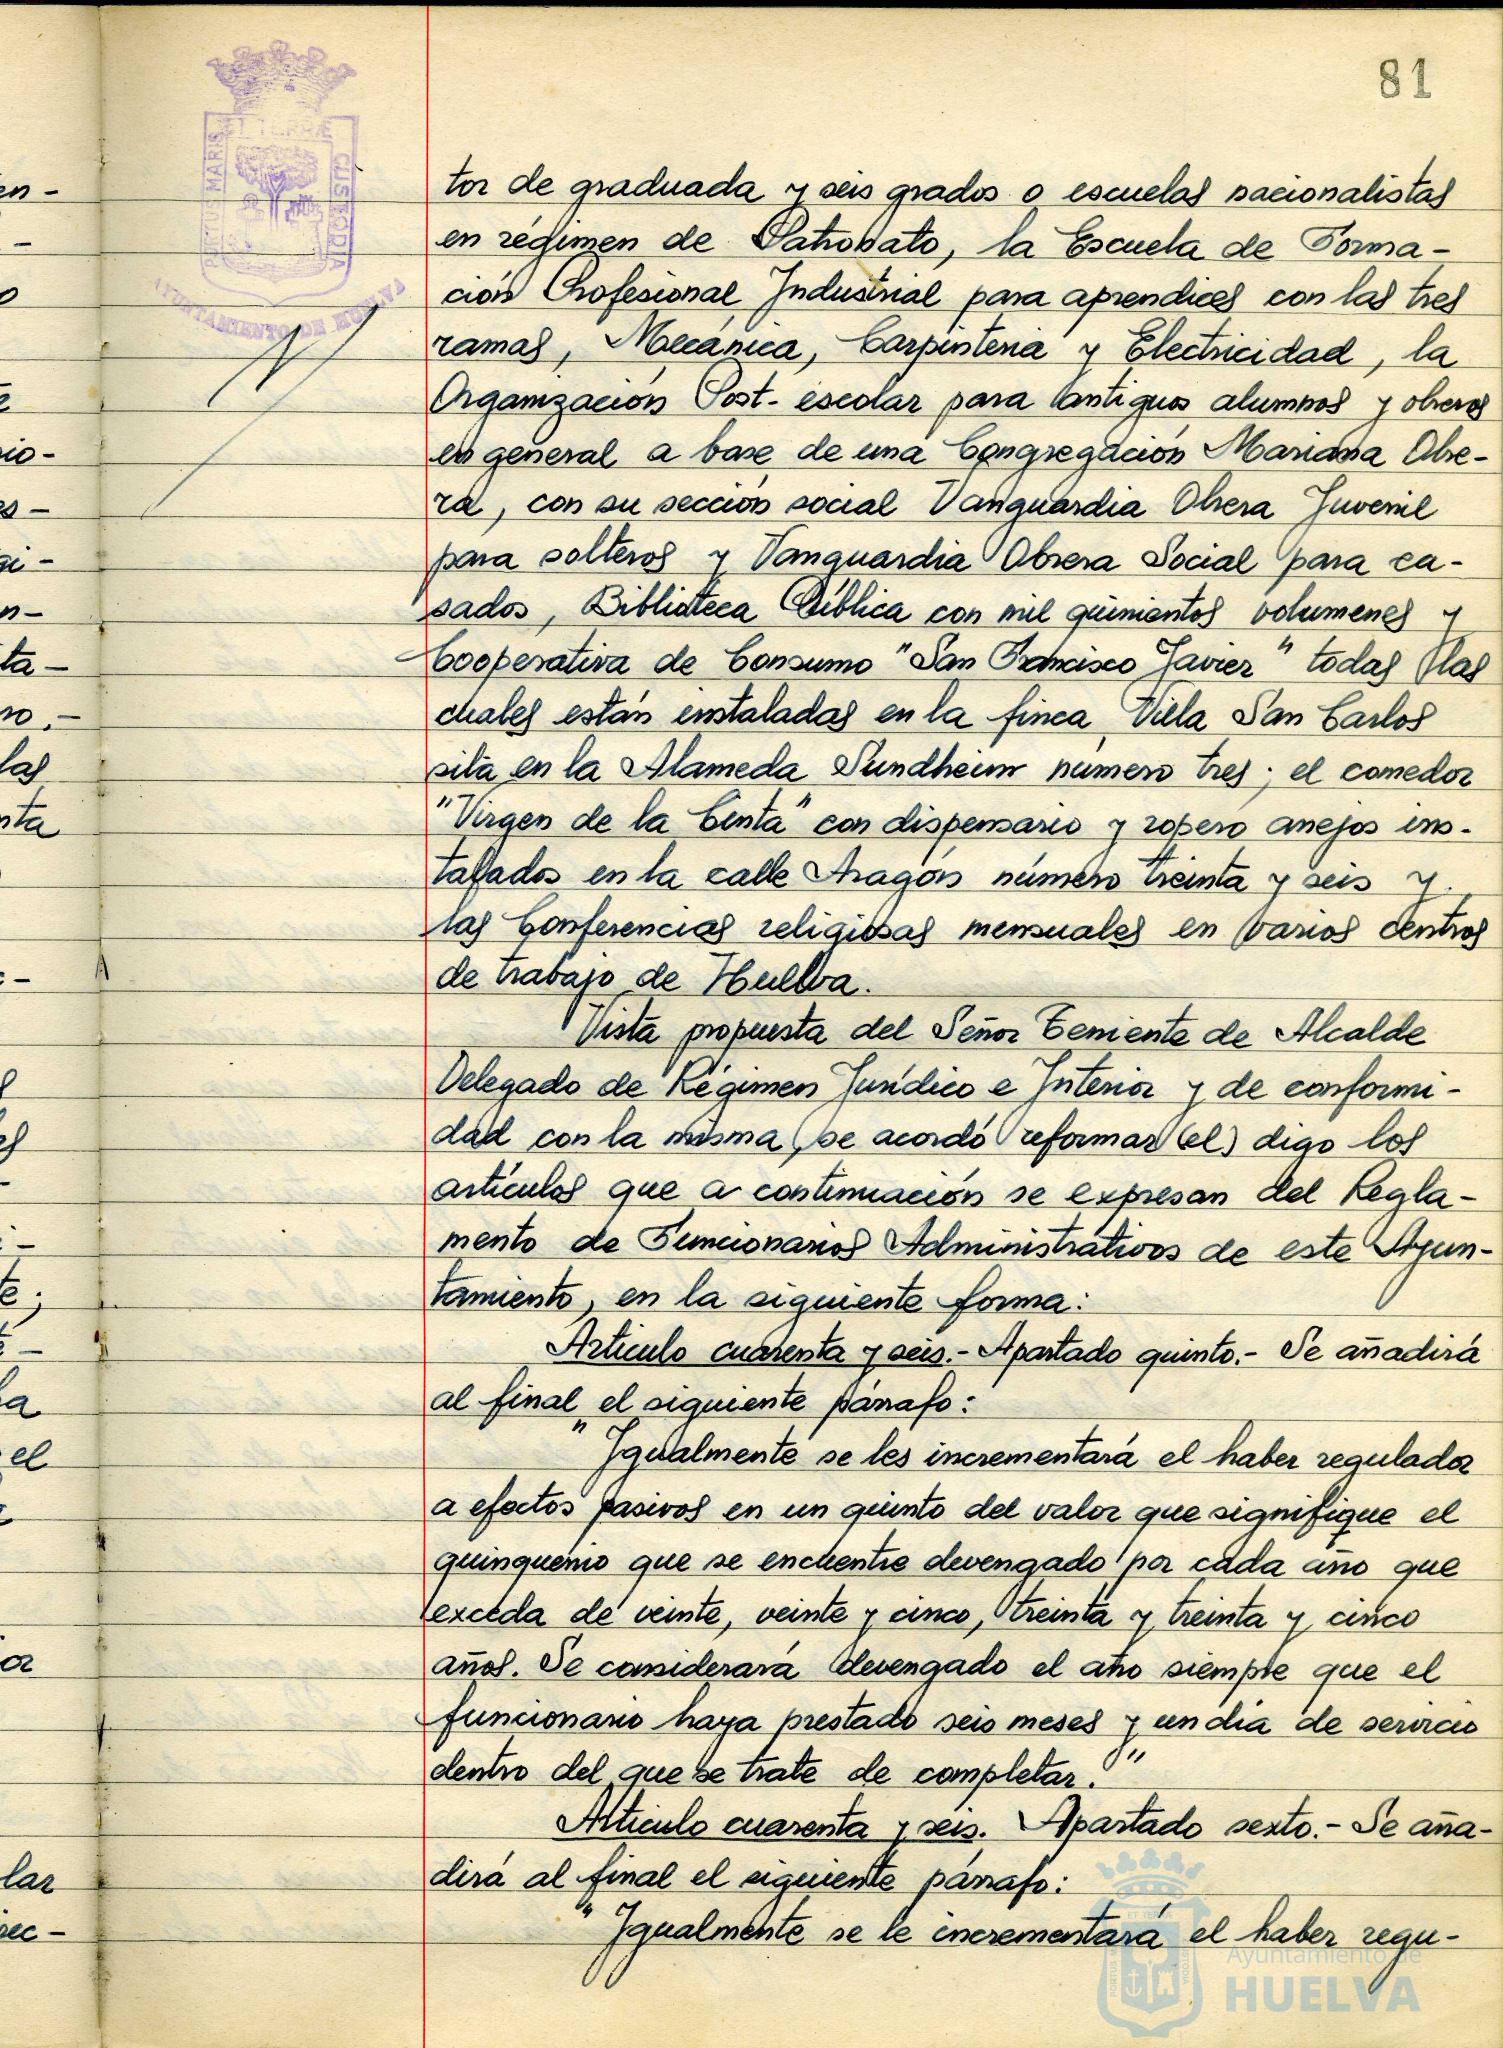 81
PORTUS MARIS ET TERRÆ CUSTODIA
AYUNTAMIENTO DE HUELVA
tor de graduada y seis grados o escuelas nacionalistas
en régimen de Patronato, la Escuela de Forma-
ción Profesional Industrial para aprendices con las tres
ramas, Mecánica, Carpintería y Electricidad, la
Organización Post-escolar para antiguos alumnos y obreros
en general a base de una Congregación Mariana Obre-
ra, con su sección social Vanguardia Obrera Juvenil
para solteros y Vanguardia Obrera Social para ca-
sados, Biblioteca Pública con mil quinientos volumenes y
Cooperativa de Consumo "San Francisco Javier" todas las
cuales están instaladas en la finca Villa San Carlos
sita en la Alameda Sundheim número tres; el comedor
"Virgen de la Cinta" con dispensario y ropero anejos ins-
talados en la calle Aragón número treinta y seis y
las Conferencias religiosas mensuales en varios centros
de trabajo de Huelva.
Vista propuesta del Señor Teniente de Alcalde
Delegado de Régimen Jurídico e Interior y de conformi-
dad con la misma, se acordó reformar (el) digo los
artículos que a continuación se expresan del Regla-
mento de Funcionarios Administrativos de este Ayun-
tamiento, en la siguiente forma:
Artículo cuarenta y seis.- Apartado quinto.- Se añadirá
al final el siguiente párrafo:
"Igualmente se les incrementará el haber regulador
a efectos pasivos en un quinto del valor que signifique el
quinquenio que se encuentre devengado por cada año que
exceda de veinte, veinte y cinco, treinta y treinta y cinco
años. Se considerará devengado el año siempre que el
funcionario haya prestado seis meses y un día de servicio
dentro del que se trate de completar."
Artículo cuarenta y seis. Apartado sexto.- Se aña-
dirá al final el siguiente párrafo:
"Igualmente se le incrementará el haber regu-
Ayuntamiento de
HUELVA